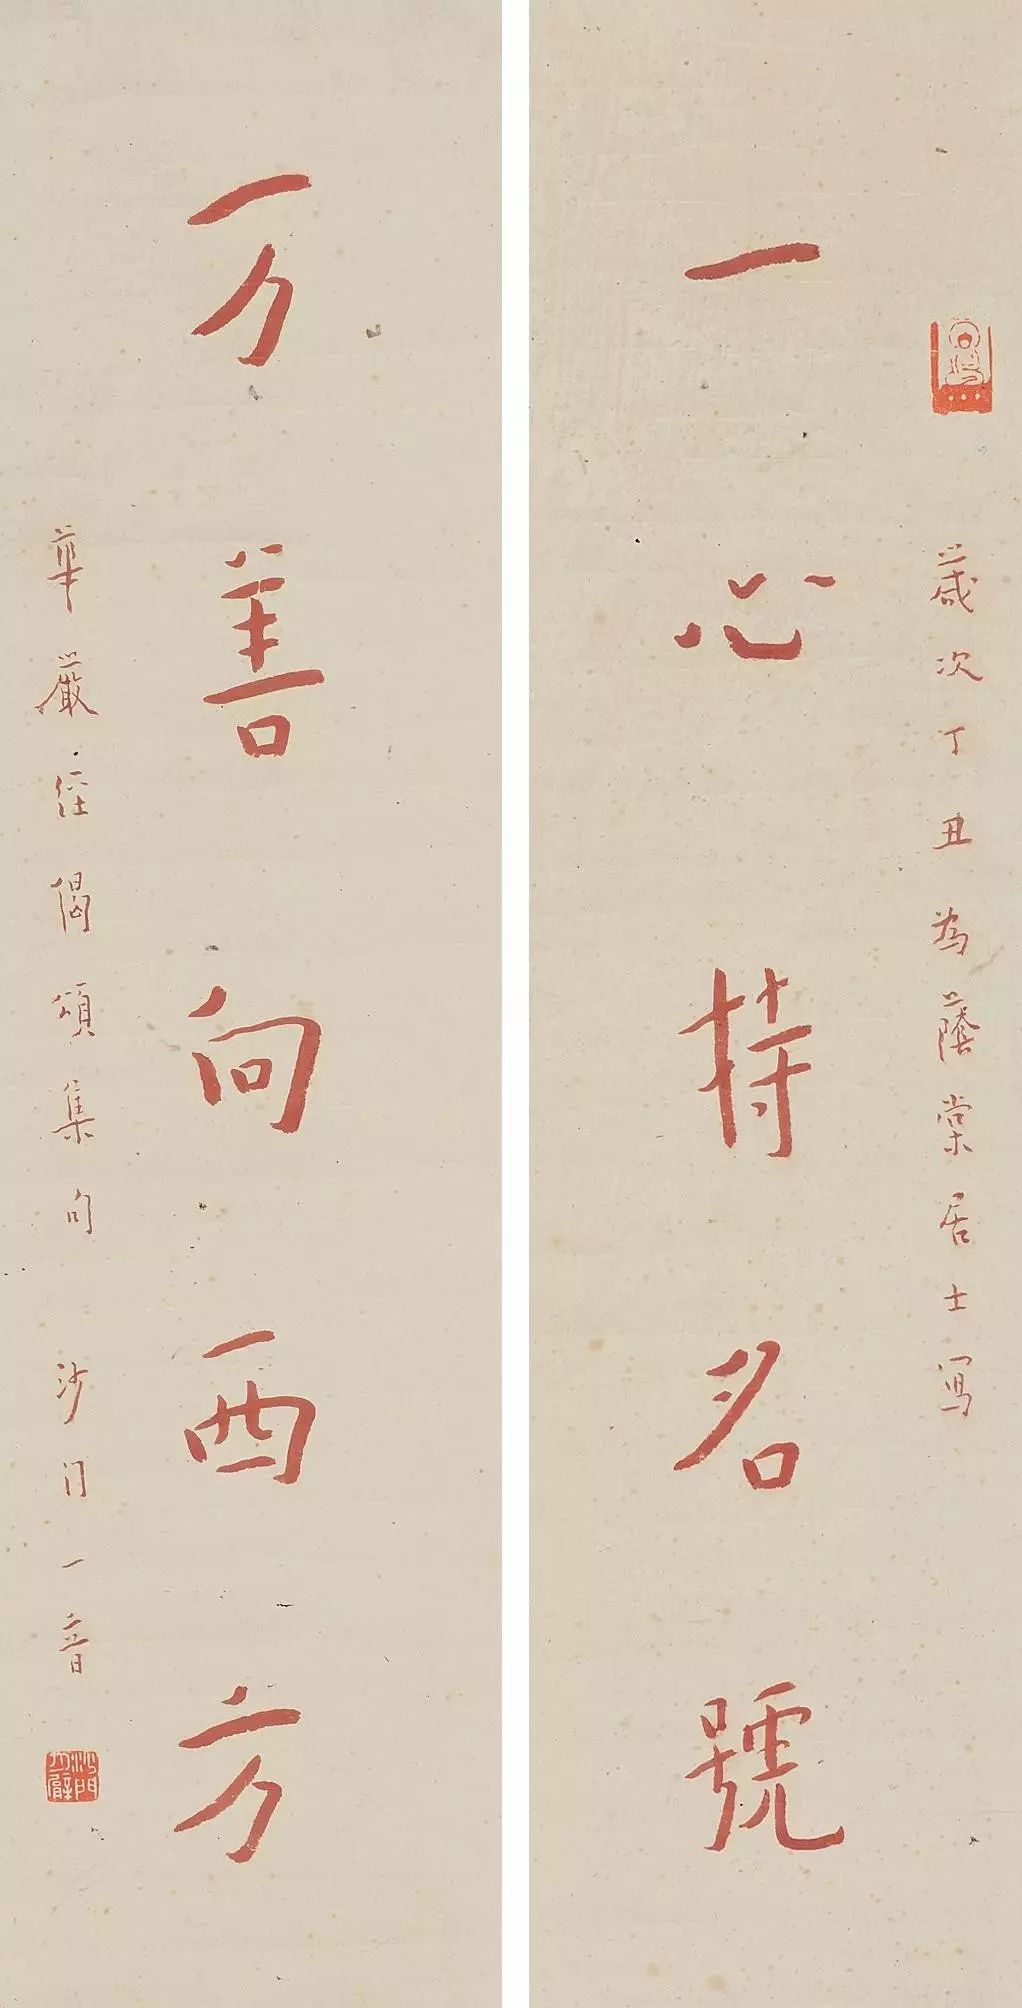 歲次丁丑為蔭棠居士写
一心持名號
万善向西方
華嚴經偈頌集句 沙门一音
沙門月臂